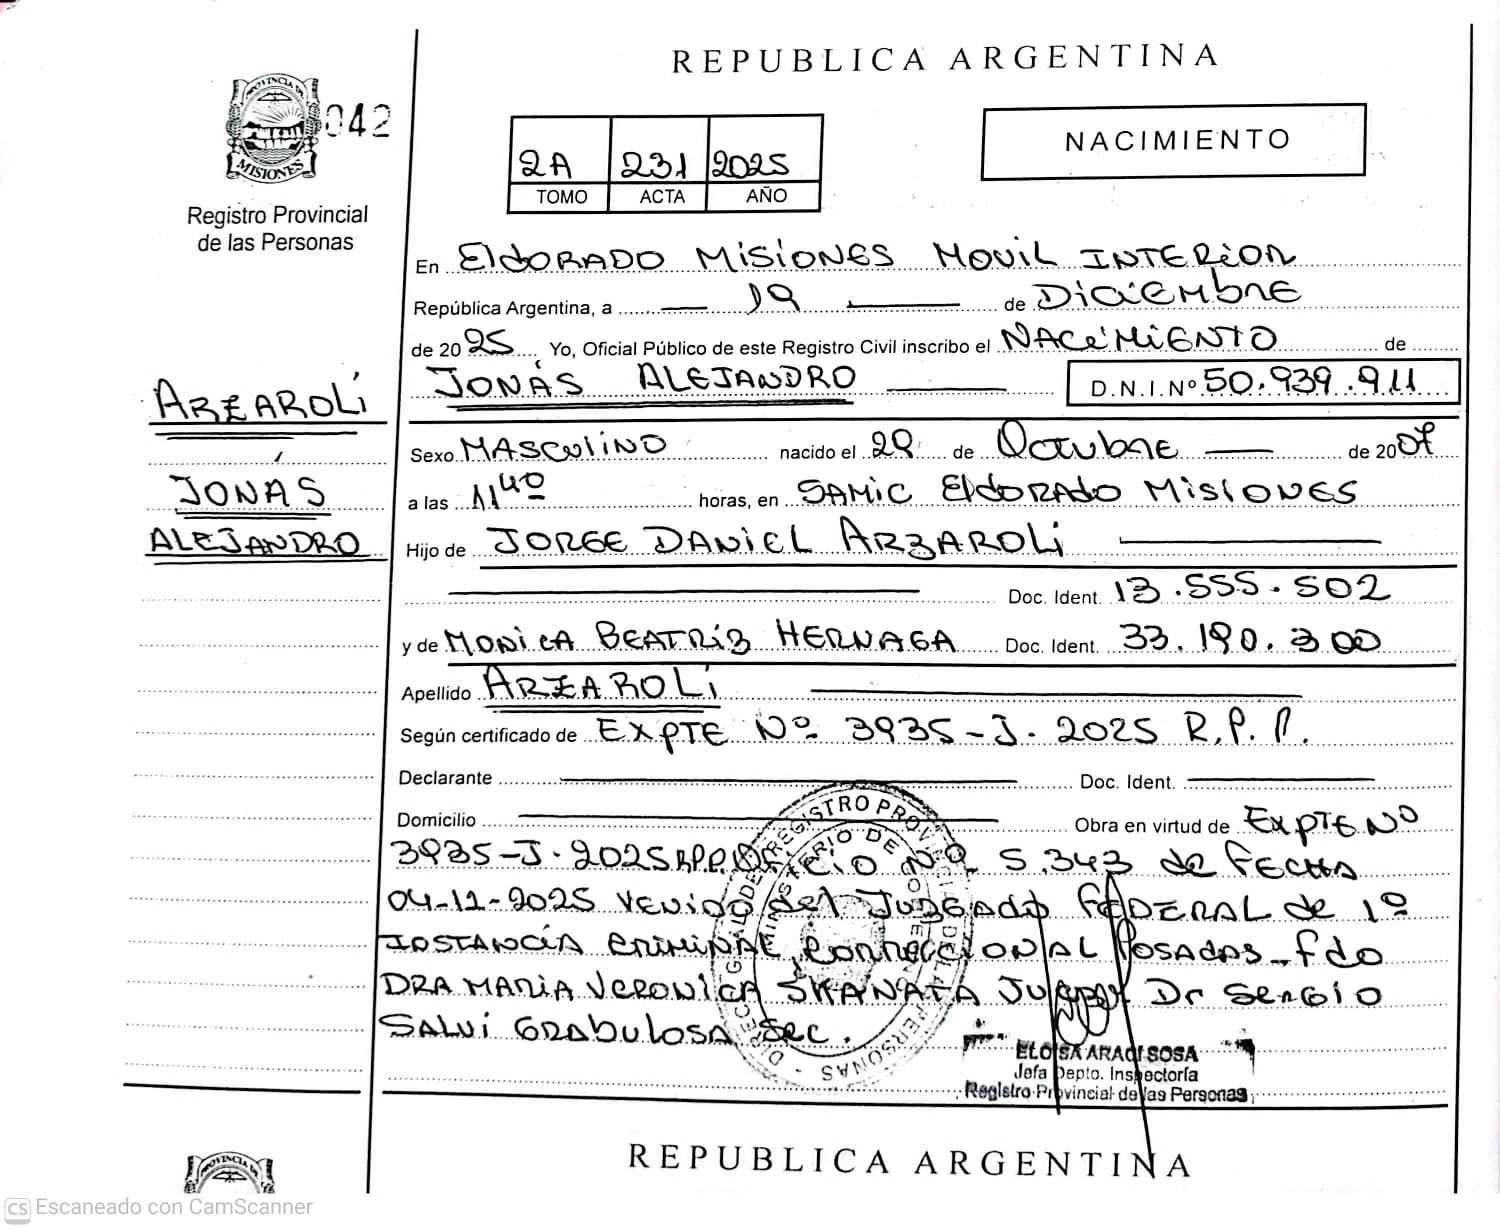 REPUBLICA ARGENTINA
PROVINCIA DE
MISIONES
042
Registro Provincial
de las Personas
2A 231 2025
TOMO ACTA AÑO
NACIMIENTO
En ElDORADO MISIONES MOVIL INTERIOR
República Argentina, a 19 de DICIEMBRE
de 2025 Yo, Oficial Público de este Registro Civil inscribo el NACIMIENTO de
JONÁS ALEJANDRO D.N.I.Nº 50.939.911
ARZAROLI
JONÁS
ALEJANDRO
Sexo MASCULINO nacido el 29 de Octubre de 2007
a las 11 40 horas, en SAMIC ElDORADO MISIONES
Hijo de JORGE DANIEL ARZAROLI
Doc. Ident. 13.555.502
y de MONICA BEATRIZ HERNAGA Doc. Ident. 33.190.300
Apellido ARZAROLI
Según certificado de EXPTE Nº 3935-J-2025 R.P.P.
Declarante Doc. Ident.
Domicilio Obra en virtud de EXPTE Nº
3935-J-2025 R.P.P. OFICIO Nº 5.343 de FECHA
04-12-2025 VENIDO del JUZGADO FEDERAL de 1º
INSTANCIA CRIMINAL, CORRECCIONAL POSADAS - fdo
DRA MARIA VERONICA SKANATA Dr SERGIO
SALVI GRABULOSA Sec.
REGISTRO PROVINCIAL DE LAS PERSONAS
MINISTERIO DE
ELOISA ARACI SOSA
Jefa Depto. Inspectoría
Registro Provincial de las Personas
REPUBLICA ARGENTINA
PROVINCIA
CS Escaneado con CamScanner